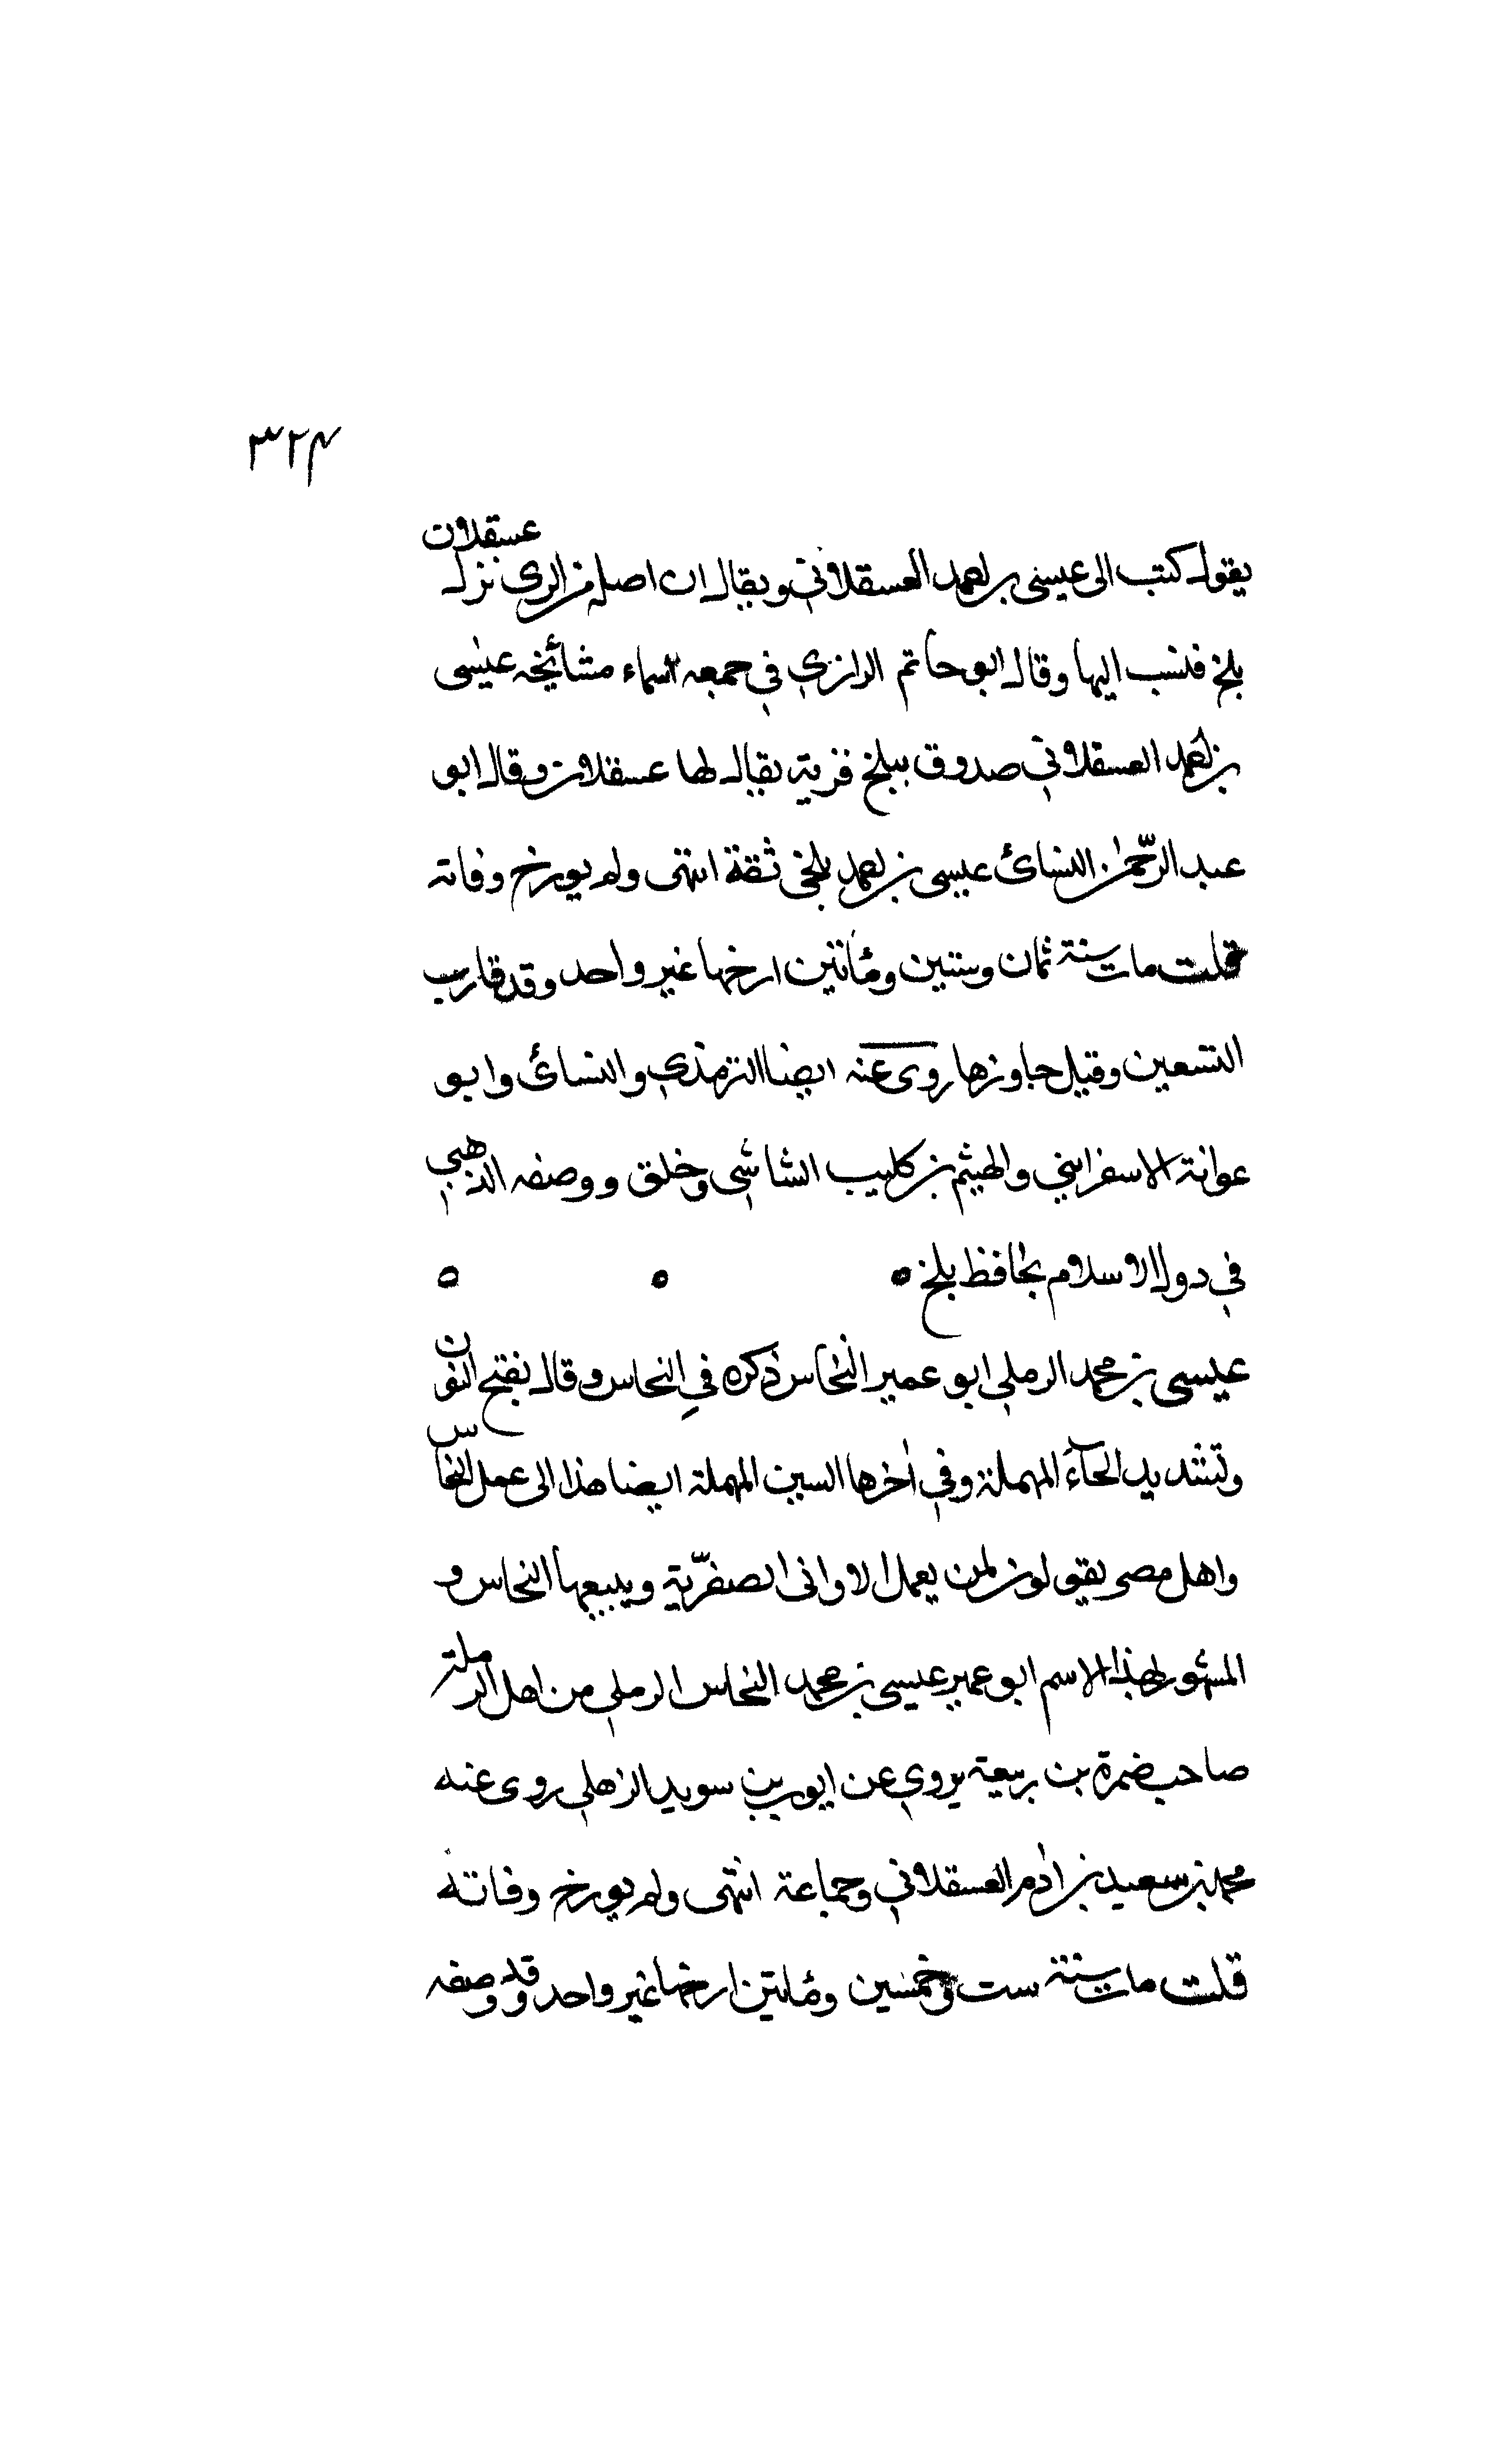 ٣٢٤
يقول كتب الى عيسى بن احمد العسقلاني ويقال ان اصله من الرى نزل عسقلان
بلخ فنسب اليها وقال ابو حاتم الرازي في جمعه اسماء مشائخه عيسى
بن احمد العسقلاني صدوق ببلخ قرية يقال لها عسقلان وقال ابو
عبد الرحمن النسائ عيسى بن احمد بلخى ثقة انتهى ولم يورخ وفاته
قلت مات سنة ثمان وستين ومأتين ارخها غير واحد وقد قارب
التسعين وقيل جاوزها روى عنه ايضا الترمذي والنسائ وابو
عوانة الاسفرايني والهيثم بن كليب الشاشي وخلق ووصفه الذهبي
في دول الاسلام بحافظ بلخ ه ه ه
عيسى بن محمد الرملي ابو عمير النحاس ذكره في النحاس وقال بفتح النون
وتشديد الحآء المهملة وفي اخرها السين المهملة ايضا هذا الى عمل النحاس
واهل مصر يقولون لمن يعمل الاوانى الصفرّية ويبيعها النحاس و
المشهور بهذا الاسم ابو عمير عيسى بن محمد النحاس الرملي من اهل الرملة
صاحب ضمرة بن ربيعة يروي عن ايوب بن سويد الزهلي روى عنه
محمد بن سعيد بن ادم العسقلاني وجماعة انتهى ولم يورخ وفاته
قلت مات سنة ست وخمسين ومأتين ارخها غير واحد وقد وصفه